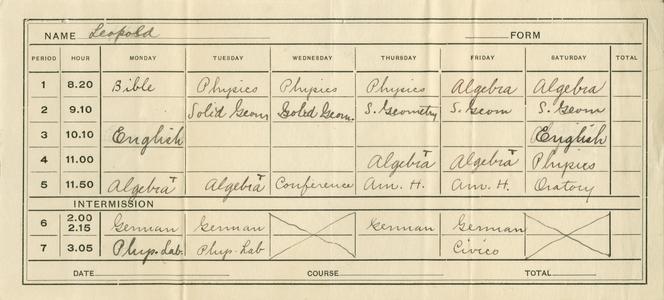 NAME Leopold FORM
PERIOD HOUR MONDAY TUESDAY WEDNESDAY THURSDAY FRIDAY SATURDAY TOTAL
1 8.20 Bible Physics Physics Physics Algebra Algebra
2 9.10 Solid Geom Solid Geom. S. Geometry S. Geom S. Geom
3 10.10 English English
4 11.00 Algebra T Algebra T Physics
5 11.50 Algebra T Algebra T Conference Am. H. Am. H. Oratory
INTERMISSION
6 2.00 2.15 German German German German
7 3.05 Phys. Lab. Phys. Lab Civics
DATE COURSE TOTAL